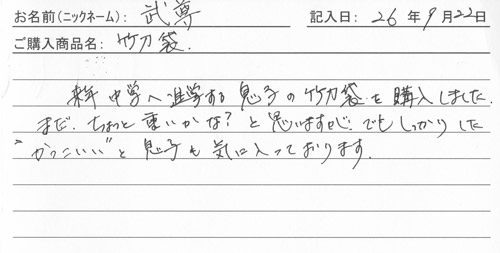 お名前(ニックネーム): 武尊 記入日: 26年9月22日
ご購入商品名: 竹刀袋.
来年 中学へ進学する 息子の竹刀袋を購入しました.
まだ、ちょっと重いかな?と思いますが、でもしっかりした
"かっこいい"と 息子も気に入っております.